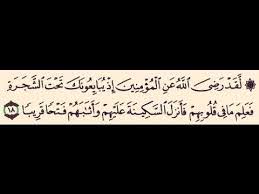 ۞ لَّقَدْ رَضِيَ اللَّهُ عَنِ الْمُؤْمِنِينَ إِذْ يُبَايِعُونَكَ تَحْتَ الشَّجَرَةِ
فَعَلِمَ مَا فِي قُلُوبِهِمْ فَأَنزَلَ السَّكِينَةَ عَلَيْهِمْ وَأَثَابَهُمْ فَتْحًا قَرِيبًا ١٨